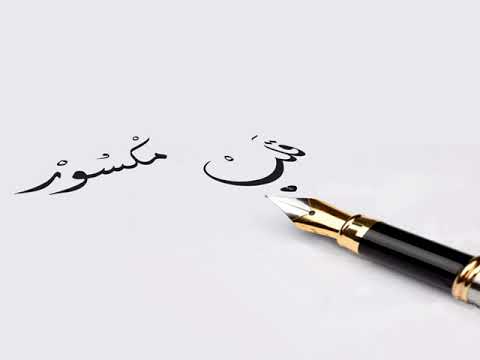 قَلبْ مكْسُورْ